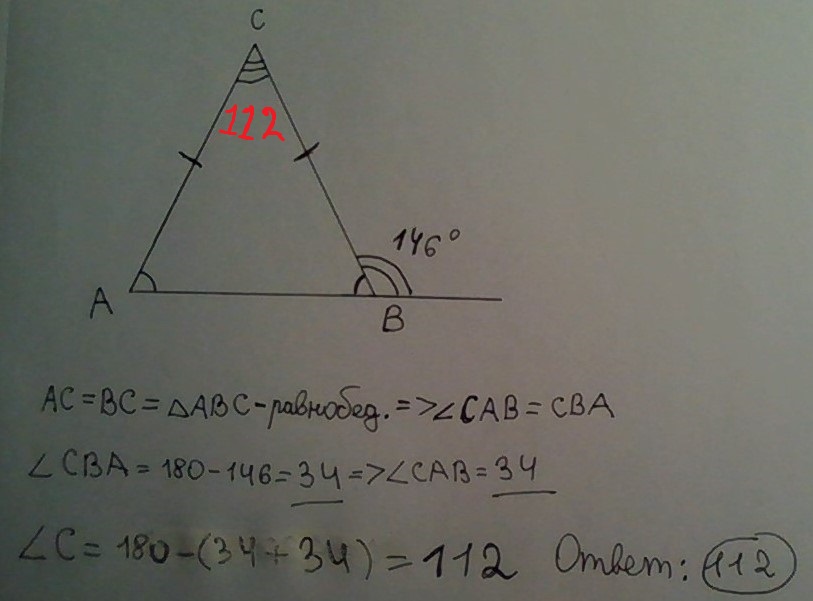 C
112
146°
A
B
AC=BC=△ABC-равнобед.=>∠CAB=CBA
∠CBA=180-146=34=>∠CAB=34
∠C=180-(34+34)=112 Ответ: 112